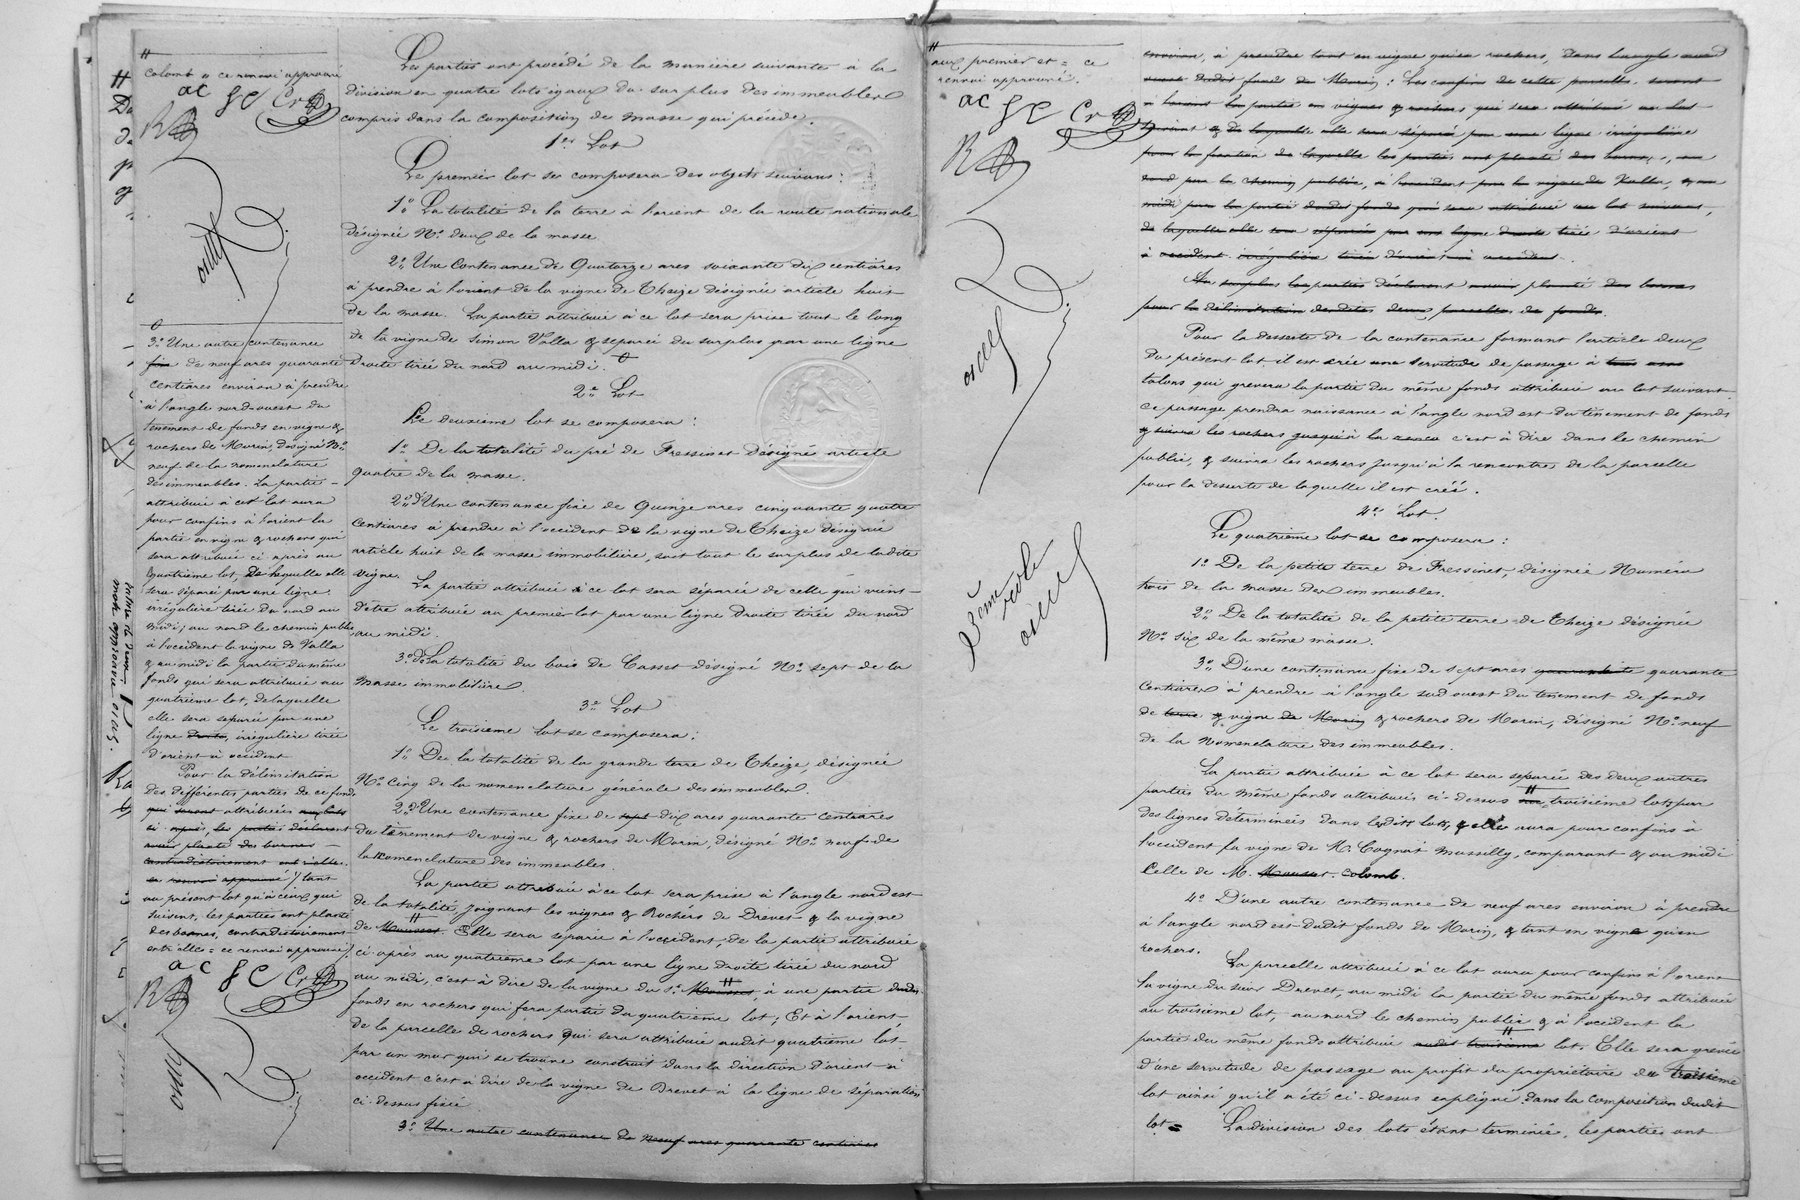 colomb = ce renvoi approuvé
ac
Les parties ont procédé de la manière suivante à la
division en quatre lots égaux du surplus des immeubles
compris dans la composition de masse qui précède.
1er Lot
Le premier lot se composera des objets suivans :
1o La totalité de la terre à l'orient de la route nationale
désignée No deux de la masse.
2o Une contenance de Quatorze ares soixante dix centiares
à prendre à l'orient de la vigne de Theize désignée article huit
de la masse. La partie attribuée à ce lot sera prise tout le long
de la vigne de Simon Valla & séparée du surplus par une ligne
droite tirée du nord au midi.
2e Lot
Le deuxième lot se composera :
1o De la totalité du pré de Fressinet désigné article
quatre de la masse.
2o D'Une contenance fixe de Quinze ares cinquante quatre
centiares à prendre à l'occident de la vigne de Theize désignée
article huit de la masse immobilière, soit tout le surplus de ladite
vigne.
La partie attribuée à ce lot sera séparée de celle qui vient
d'être attribuée au premier lot par une ligne droite tirée du nord
au midi.
3o De La totalité du bois de Casset désigné No sept de la
masse immobilière.
3e Lot
Le troisième lot se composera :
1o De la totalité de la grande terre de Theize, désignée
No cinq de la nomenclature générale des immeubles.
2o D'Une contenance fixe de sept dix ares quarante centiares
du tènement de vigne & rochers de Morin, désigné No neuf de
la nomenclature des immeubles.
La partie attribuée à ce lot sera prise à l'angle nord est
de la totalité, joignant les vignes & Rochers de Drevet & la vigne
de Mousset. Elle sera séparée à l'occident, de la partie attribuée
ci-après au quatrième lot par une ligne droite tirée du nord
au midi, c'est à dire de la vigne du Sr. Mousset, à une partie dudit
fonds en rochers qui fera partie du quatrième lot ; Et à l'orient,
de la parcelle de rochers qui sera attribuée audit quatrième lot
par un mur qui se trouve construit dans la direction d'orient à
occident c'est à dire de la vigne de Drevet à la ligne de séparation
ci-dessus fixée.
3o Une autre contenance de Neuf ares quarante centiares
3o Une autre contenance
fixe de neuf ares quarante
centiares environ à prendre
à l'angle nord-ouest du
tenement de fonds en vigne &
rochers de Morin, désigné No
neuf de la nomenclature
des immeubles. La partie
attribuée à cet lot aura
pour confins à l'orient la
partie en vigne & rochers qui
sera attribuée ci après au
quatrième lot, De laquelle elle
sera séparée par une ligne
irrégulière tirée du nord au
midi ; au nord le chemin public
à l'occident la vigne de Valla
& au midi la partie du même
fonds qui sera attribuée au
quatrième lot, de laquelle
elle sera séparée par une
ligne droite, irrégulière tirée
d'orient à occident
Pour la délimitation
des différentes parties de ce fonds
qui seront attribuées aux lots
ci-après, les parties déclarent
avoir planté des bornes
contradictoirement entr'elles.
ce renvoi approuvé / tant
au présent lot qu'à ceux qui
suivent, les parties ont planté
des bornes, contradictoirement
entr'elles = ce renvoi approuvé /.
ac
aux premier et = ce
renvoi approuvé.
ac
2ème rôle
environ, à prendre tant en vigne qu'en rochers, dans l'angle nord
ouest dudit fonds de Morin ; Les confins de cette parcelle seront
à l'orient la partie en vignes & rochers qui sera attribuée au lot
suivant & de laquelle elle sera séparée par une ligne irrégulière
pour la fixation de laquelle les parties ont planté des bornes, au
nord par le chemin public, à l'occident par la vigne de Valla, & au
midi par la partie dudit fonds qui sera attribuée au lot suivant,
de laquelle elle sera séparée par une ligne droite tirée d'orient
à occident irrégulière tirée d'orient à occident.
Au surplus les parties déclarent avoir planté des bornes
pour la délimitation desdites deux parcelles de fonds.
Pour la desserte de la contenance formant l'article deux
du présent lot, il est créé une servitude de passage à
talons qui grevera la partie du même fonds attribuée au lot suivant.
Ce passage prendra naissance à l'angle nord est du tènement de fonds
& suivra les rochers jusqu'à la c'est à dire dans le chemin
public, & suivra les rochers jusqu'à la rencontre de la parcelle
pour la desserte de laquelle il est créé.
4e Lot.
Le quatrième lot se composera :
1o De la petite terre de Fressinet, désignée Numéro
trois de la masse des immeubles.
2o De la totalité de la petite terre de Theize désignée
No six de la même masse.
3o D'une contenance fixe de sept ares quarante
centiares à prendre à l'angle sud ouest du tènement de fonds
de terre & vigne de Morin & rochers de Morin, désigné No neuf
de la nomenclature des immeubles.
La partie attribuée à ce lot sera séparée des deux autres
parties du même fonds attribuées ci-dessus au troisième lots par
des lignes déterminées dans lesdits lots, & elle aura pour confins à
l'occident la vigne de M. Cognat Massilly, comparant & au midi
Celle de M. Mousset. Colomb.
4o D'une autre contenance de neuf ares environ à prendre
à l'angle nord est dudit fonds de Morin, & tant en vigne qu'en
rochers.
La parcelle attribuée à ce lot aura pour confins à l'orient
la vigne du sieur Drevet, au midi la partie du même fonds attribuée
au troisième lot, au nord le chemin public & à l'occident la
partie du même fonds attribuée audit troisième lot. Elle sera grevée
d'une servitude de passage au profit du propriétaire du troisième
lot ainsi qu'il a été ci-dessus expliqué dans la composition dudit
lot =
La division des lots étant terminée, les parties ont